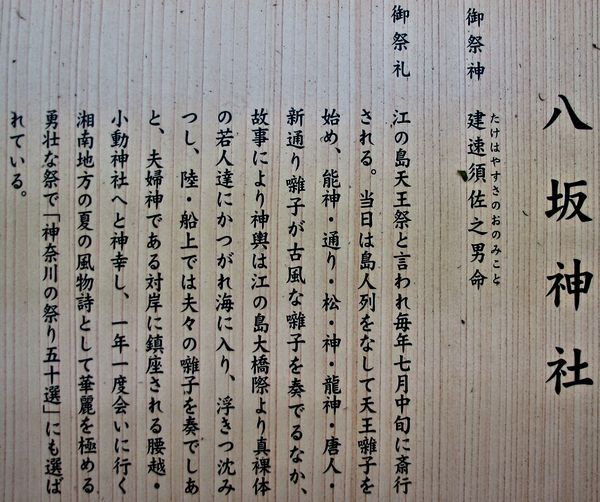 八坂神社
御祭神　建速須佐之男命
たけはやすさのおのみこと
御祭礼　江の島天王祭と言われ毎年七月中旬に斎行
される。当日は島人列をなして天王囃子を
始め、能神・通り・松・神・龍神・唐人・
新通り囃子が古風な囃子を奏でるなか、
故事により神輿は江の島大橋際より真裸体
の若人達にかつがれ海に入り、浮きつ沈み
つし、陸・船上では夫々の囃子を奏でしあ
と、夫婦神である対岸に鎮座される腰越・
小動神社へと神幸し、一年一度会いに行く
湘南地方の夏の風物詩として華麗を極める
勇壮な祭で「神奈川の祭り五十選」にも選ば
れている。